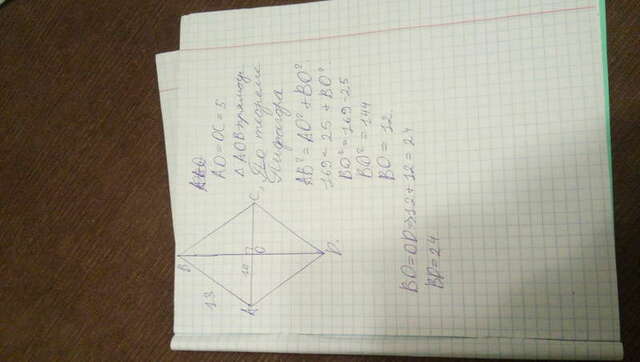 B
13
A
10
O
C
D.
AO = OC = 5
△ AOB прямоуг
По теореме
Пифагора
AB² = AO² + BO²
169 = 25 + BO²
BO² = 169-25
BO² = 144
BO = 12
BO=OD=>12+12=24
BD=24